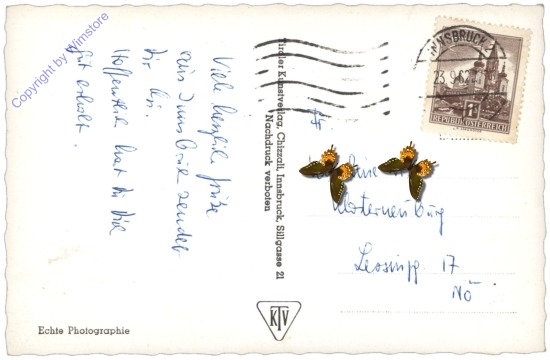 Copyright by Wimstore
Viele herzliche Grüße
aus Innsbruck sendet
Dir
Hoffentlich hast Du Dich
gut erholt.
Tiroler Kunstverlag, Chizzali, Innsbruck, Sillgasse 21
Nachdruck verboten
INNSBRUCK
23.9.62
REPUBLIK ÖSTERREICH
Klosterneuburg
17
NÖ
KTV
Echte Photographie